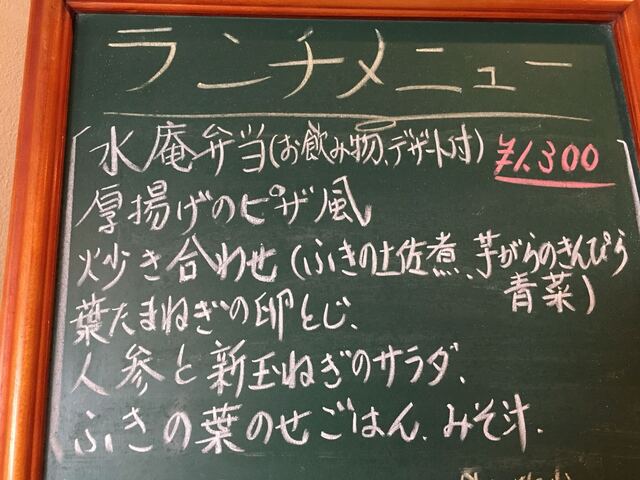 ランチメニュー
水庵弁当(お飲み物、デザート付) ¥1.300
厚揚げのピザ風
炒き合わせ(ふきの土佐煮、芋がらのきんぴら
青菜)
葉たまねぎの卵とじ、
人参と新玉ねぎのサラダ、
ふきの葉のせごはん、みそ汁.